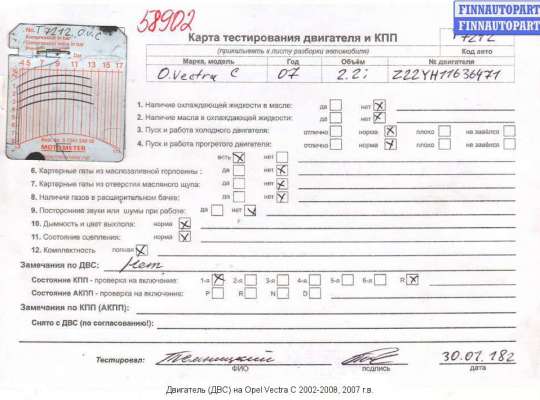 FINNAUTOPART
FINNAUTOPART
№ T7212. O.V.C
58902
Карта тестирования двигателя и КПП
(прикалывать к листу разборки автомобиля)
T7212
Код авто
Марка, модель Год Объём № двигателя
O.Vectra C 07 2.2i Z22YH11636471
1. Наличие охлаждающей жидкости в масле: да нет
2. Наличие масла в охлаждающей жидкости: да нет
3. Пуск и работа холодного двигателя: отлично норма плохо не завёлся
4. Пуск и работа прогретого двигателя: отлично норма плохо не завёлся
есть нет
6. Картерные газы из маслозаливной горловины: да нет
7. Картерные газы из отверстия масляного щупа: да нет
8. Наличие газов в расширительном бачке: да нет
9. Посторонние звуки или шумы при работе: да нет
10. Дымность и цвет выхлопа: норма
11. Состояние сцепления: норма
12. Комплектность полная
Замечания по ДВС: Нет
Состояние КПП - проверка на включение: 1-я 2-я 3-я 4-я 5-я 6-я R
Состояние АКПП - проверка на включение: P R N D
Замечания по КПП (АКПП):
Снято с ДВС (по согласованию!):
Тестировал: Темницкий 30.01.182
ФИО подпись дата
MOTOMETER
4 5 7 9 11 13 15 17
Двигатель (ДВС) на Opel Vectra C 2002-2008, 2007 г.в.